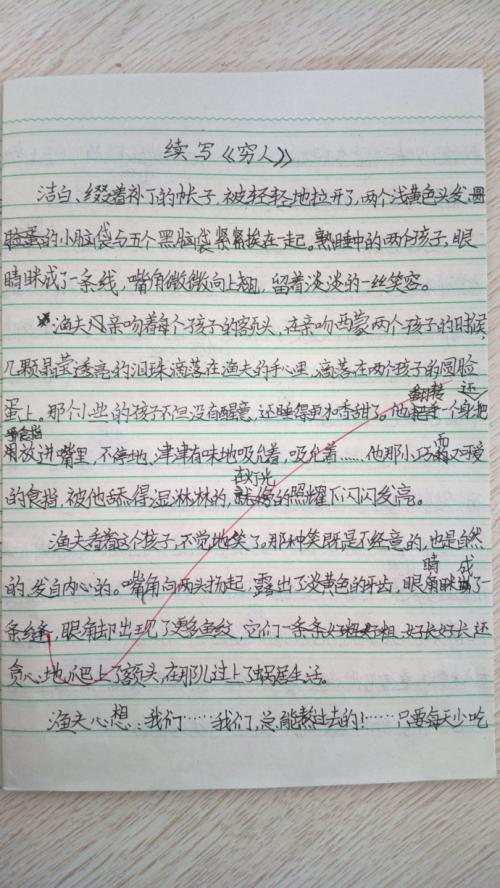 续写《穷人》
洁白、缀着补丁的帐子，被轻轻地拉开了，两个浅黄色头发、
脸蛋的小脑袋与五个黑脑袋紧紧挨在一起。熟睡中的两个孩子，眼
睛眯成了一条线，嘴角微微向上翘，留着淡淡的一丝笑容。
渔夫亲吻着每个孩子的额头，在亲吻西蒙两个孩子的时候，
几颗晶莹透亮的泪珠滴落在渔夫的手心里，滴落在两个孩子的圆脸
蛋上。那个小些的孩子不但没有醒意，还睡得更加香甜了。他翻转一个身，还把
食指放进嘴里，不停地、津津有味地吸允着，吸允着……他那小巧而又可爱
的食指，被他舔得湿淋淋的，在灯光的照耀下闪闪发亮。
渔夫看着这个孩子，不觉地笑了。那种笑既是不经意的，也是自然
的、发自内心的。嘴角向两头扬起，露出了淡黄色的牙齿，眼睛眯成了
一条缝，眼角却出现了更多鱼纹，它们一条条好粗好粗、好长好长，还
贪心地爬上了额头，在那儿过上了蜗居生活。
渔夫心想：我们……我们，总能熬过去的！……只要每天少吃